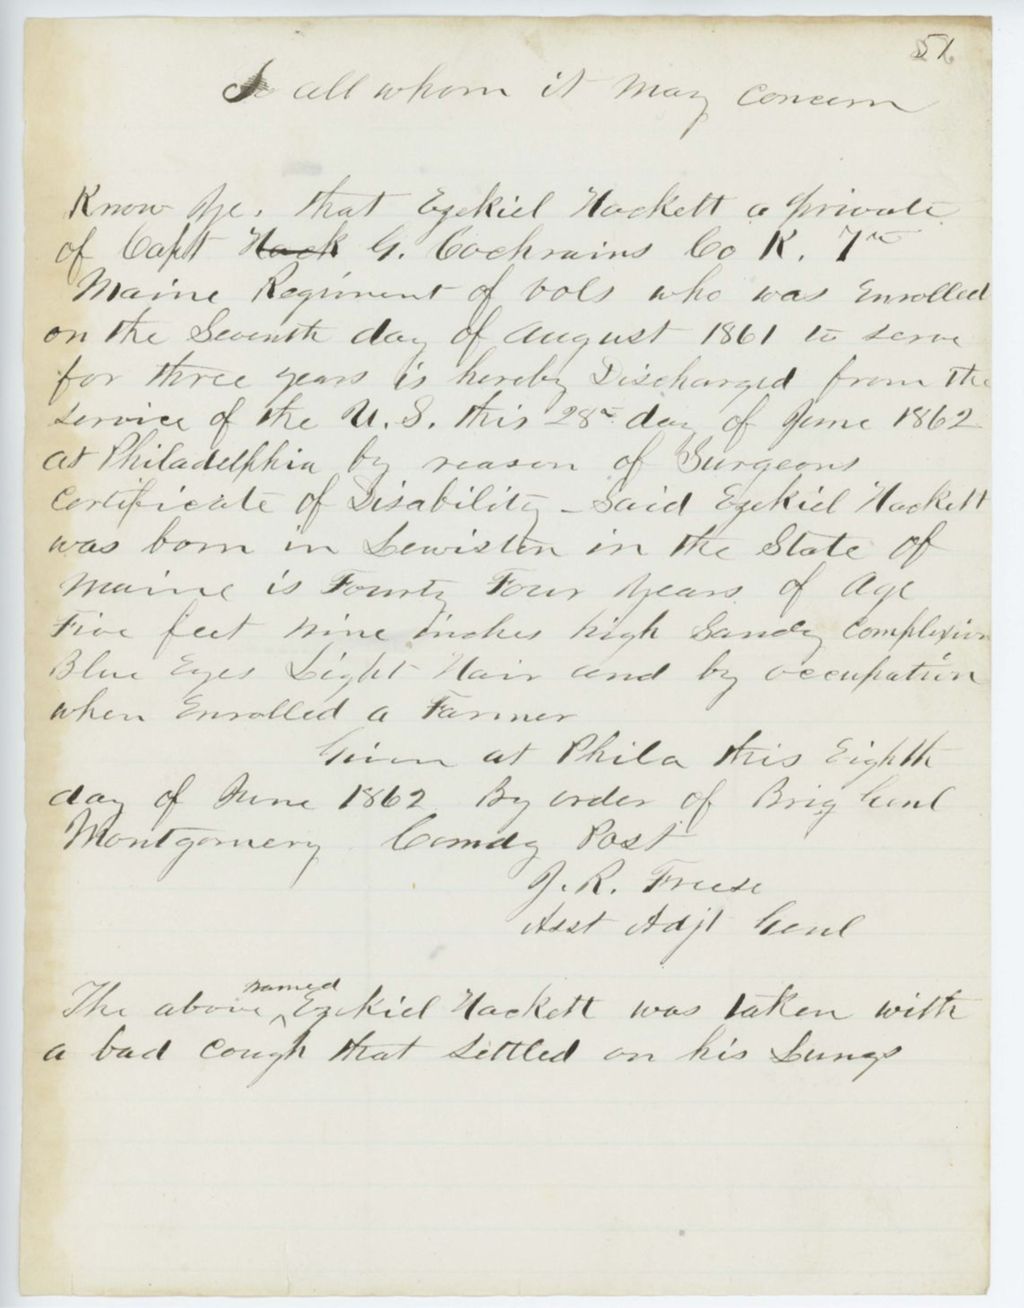 51
To all whom it may concern
Know Ye. that Ezekiel Hackett a private
of Capt Hack G. Cochrains Co K. 7th
Maine Regiment of vols who was Enrolled
on the Seventh day of August 1861 to serve
for three years is hereby Discharged from the
service of the U.S. this 28th day of June 1862
at Philadelphia by reason of Surgeons
certificate of Disability - Said Ezekiel Hackett
was born in Lewiston in the State of
Maine is Fourty Four years of Age
Five feet nine inches high Sandy Complexion
Blue Eyes Light Hair and by occupation
when Enrolled a Farmer
Given at Phila this Eighth
day of June 1862 By order of Brig Genl
Montgomery Comdg Post
J. R. Freese
Asst Adjt Genl
The above named Ezekiel Hackett was taken with
a bad cough that settled on his Lungs